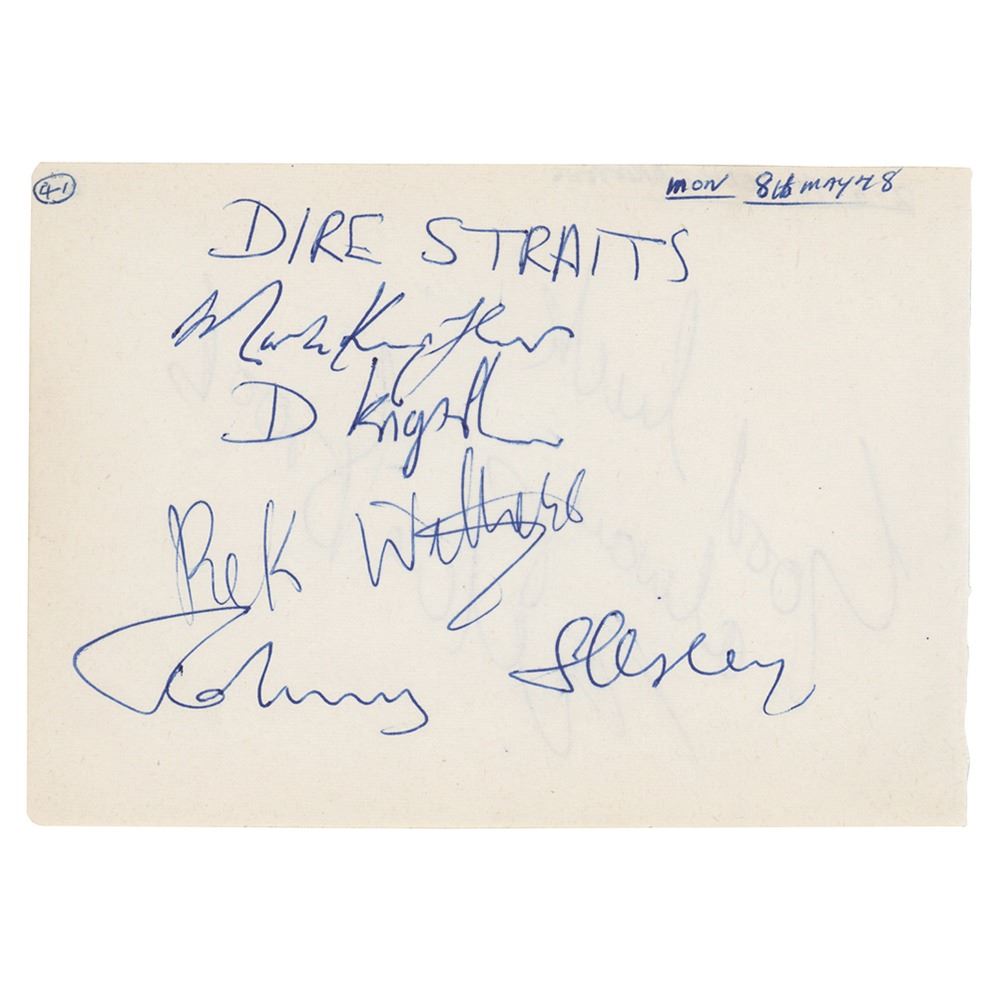 41 MON 8th MAY 78
DIRE STRAITS
Mark Knopfler
D Knopfler
Pick Withers
Johnny Illsley